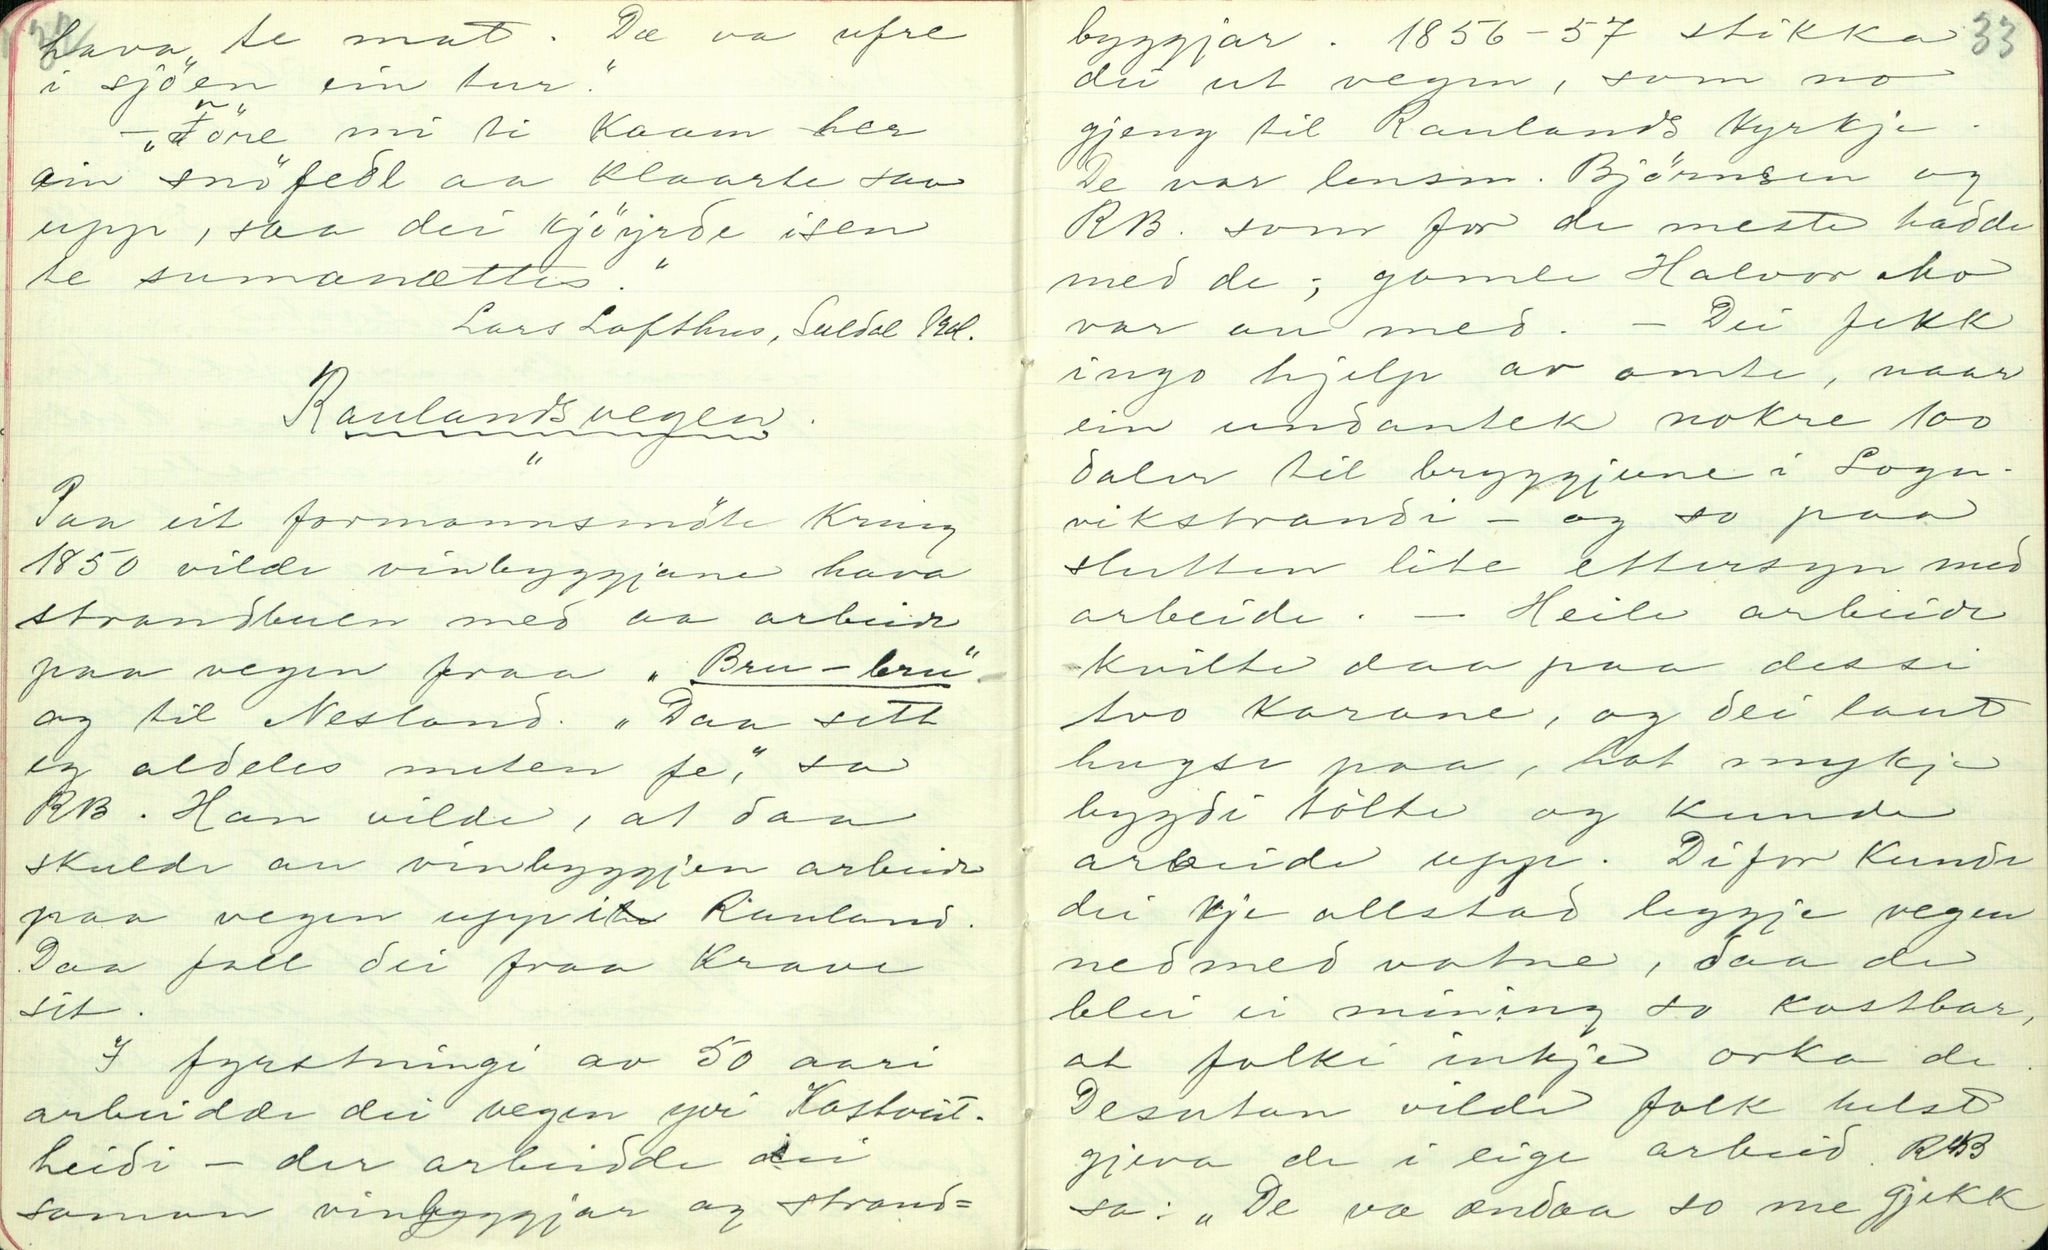 hava te mat. Dæ va ufre
i sjöen ein tur."
— „Före mi ti kaam her
ain snöfedl aa klaarte saa
upp, saa dei kjöyrde isen
te sumanættes."
Lars Lofthus, Suldal
Raulandsvegen.
"
Paa eit formannsmöte kring
1850 vilde vinbyggjane hava
strandbuen med aa arbeide
paa vegen fraa „Bru-bru"
og til Nesland. „Daa sett
eg aldeles neten fe", sa
RB. Han vilde, at daa
skulde au vinbyggjen arbeide
paa vegen uppi Rauland.
Daa fall dei fraa krave
sit.
I fyrstningi av 50 aari
arbeidde dei vegen yvi Kostveit-
heidi — der arbeidde dei
saman vinbyggjar og strand=
33
byggjar. 1856–57 stikka
dei ut vegen, som no
gjeng til Raulands kyrkje.
De var lensm. Björnsen og
RB. som for de meste hadde
med de; gamle Halvor Mo
var au med. — Dei fekk
ingo hjelp av amte, naar
ein undantek nokre 100
dalar til bryggjune i Logn-
vikstrandi — og so paa
slutten lite ettersyn med
arbeide. — Heile arbeide
kvilte daa paa dessi
tvo karane, og dei laut
hugse paa, hot mykje
bygdi tölte og kunde
arbeide upp. Difor kunde
dei kje allstad leggje vegen
nedmed vatne, daa de
blei ei mining so kostbar,
at folki inkje orka de.
Desutan vilde folk helst
gjeva de i eige arbeid. RB
sa: „De va ændaa so me gjekk